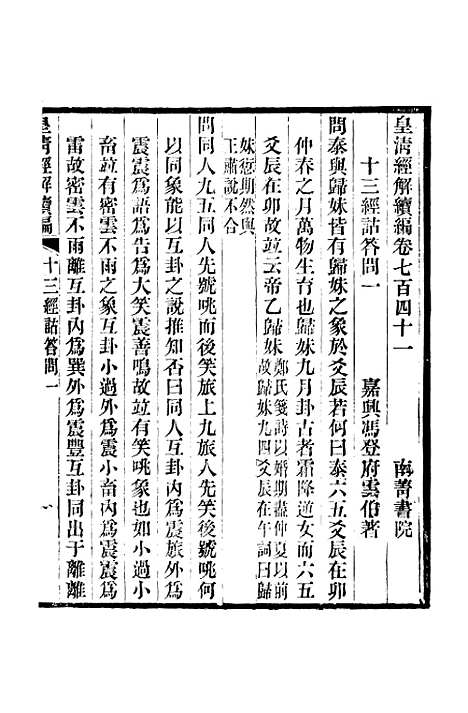 皇清經解續編卷七百四十一 南菁書院
十三經詁答問一 嘉興馮登府雲伯著
問泰與歸妹皆有歸妹之象於爻辰若何曰泰六五爻辰在卯
仲春之月萬物生育也歸妹九月卦古者霜降逆女而六五
爻辰在卯故竝云帝乙歸妹鄭氏箋詩以婚期盡仲夏以前
故歸妹九四爻辰在午詞曰歸
妹愆期然與
王肅說不合
問同人九五同人先號咷而後笑旅上九旅人先笑後號咷何
以同象能以互卦之說推知否曰同人互卦外為震旅外為
震震為語為告為大笑震善鳴故竝有笑咷象也如小過小
畜竝有密雲不雨之象互卦小過外為震小畜內為震震為
雷故密雲不雨離互卦內為巽外為震豐互卦同出于離離
皇清經解續編 十三經詁答問一 一